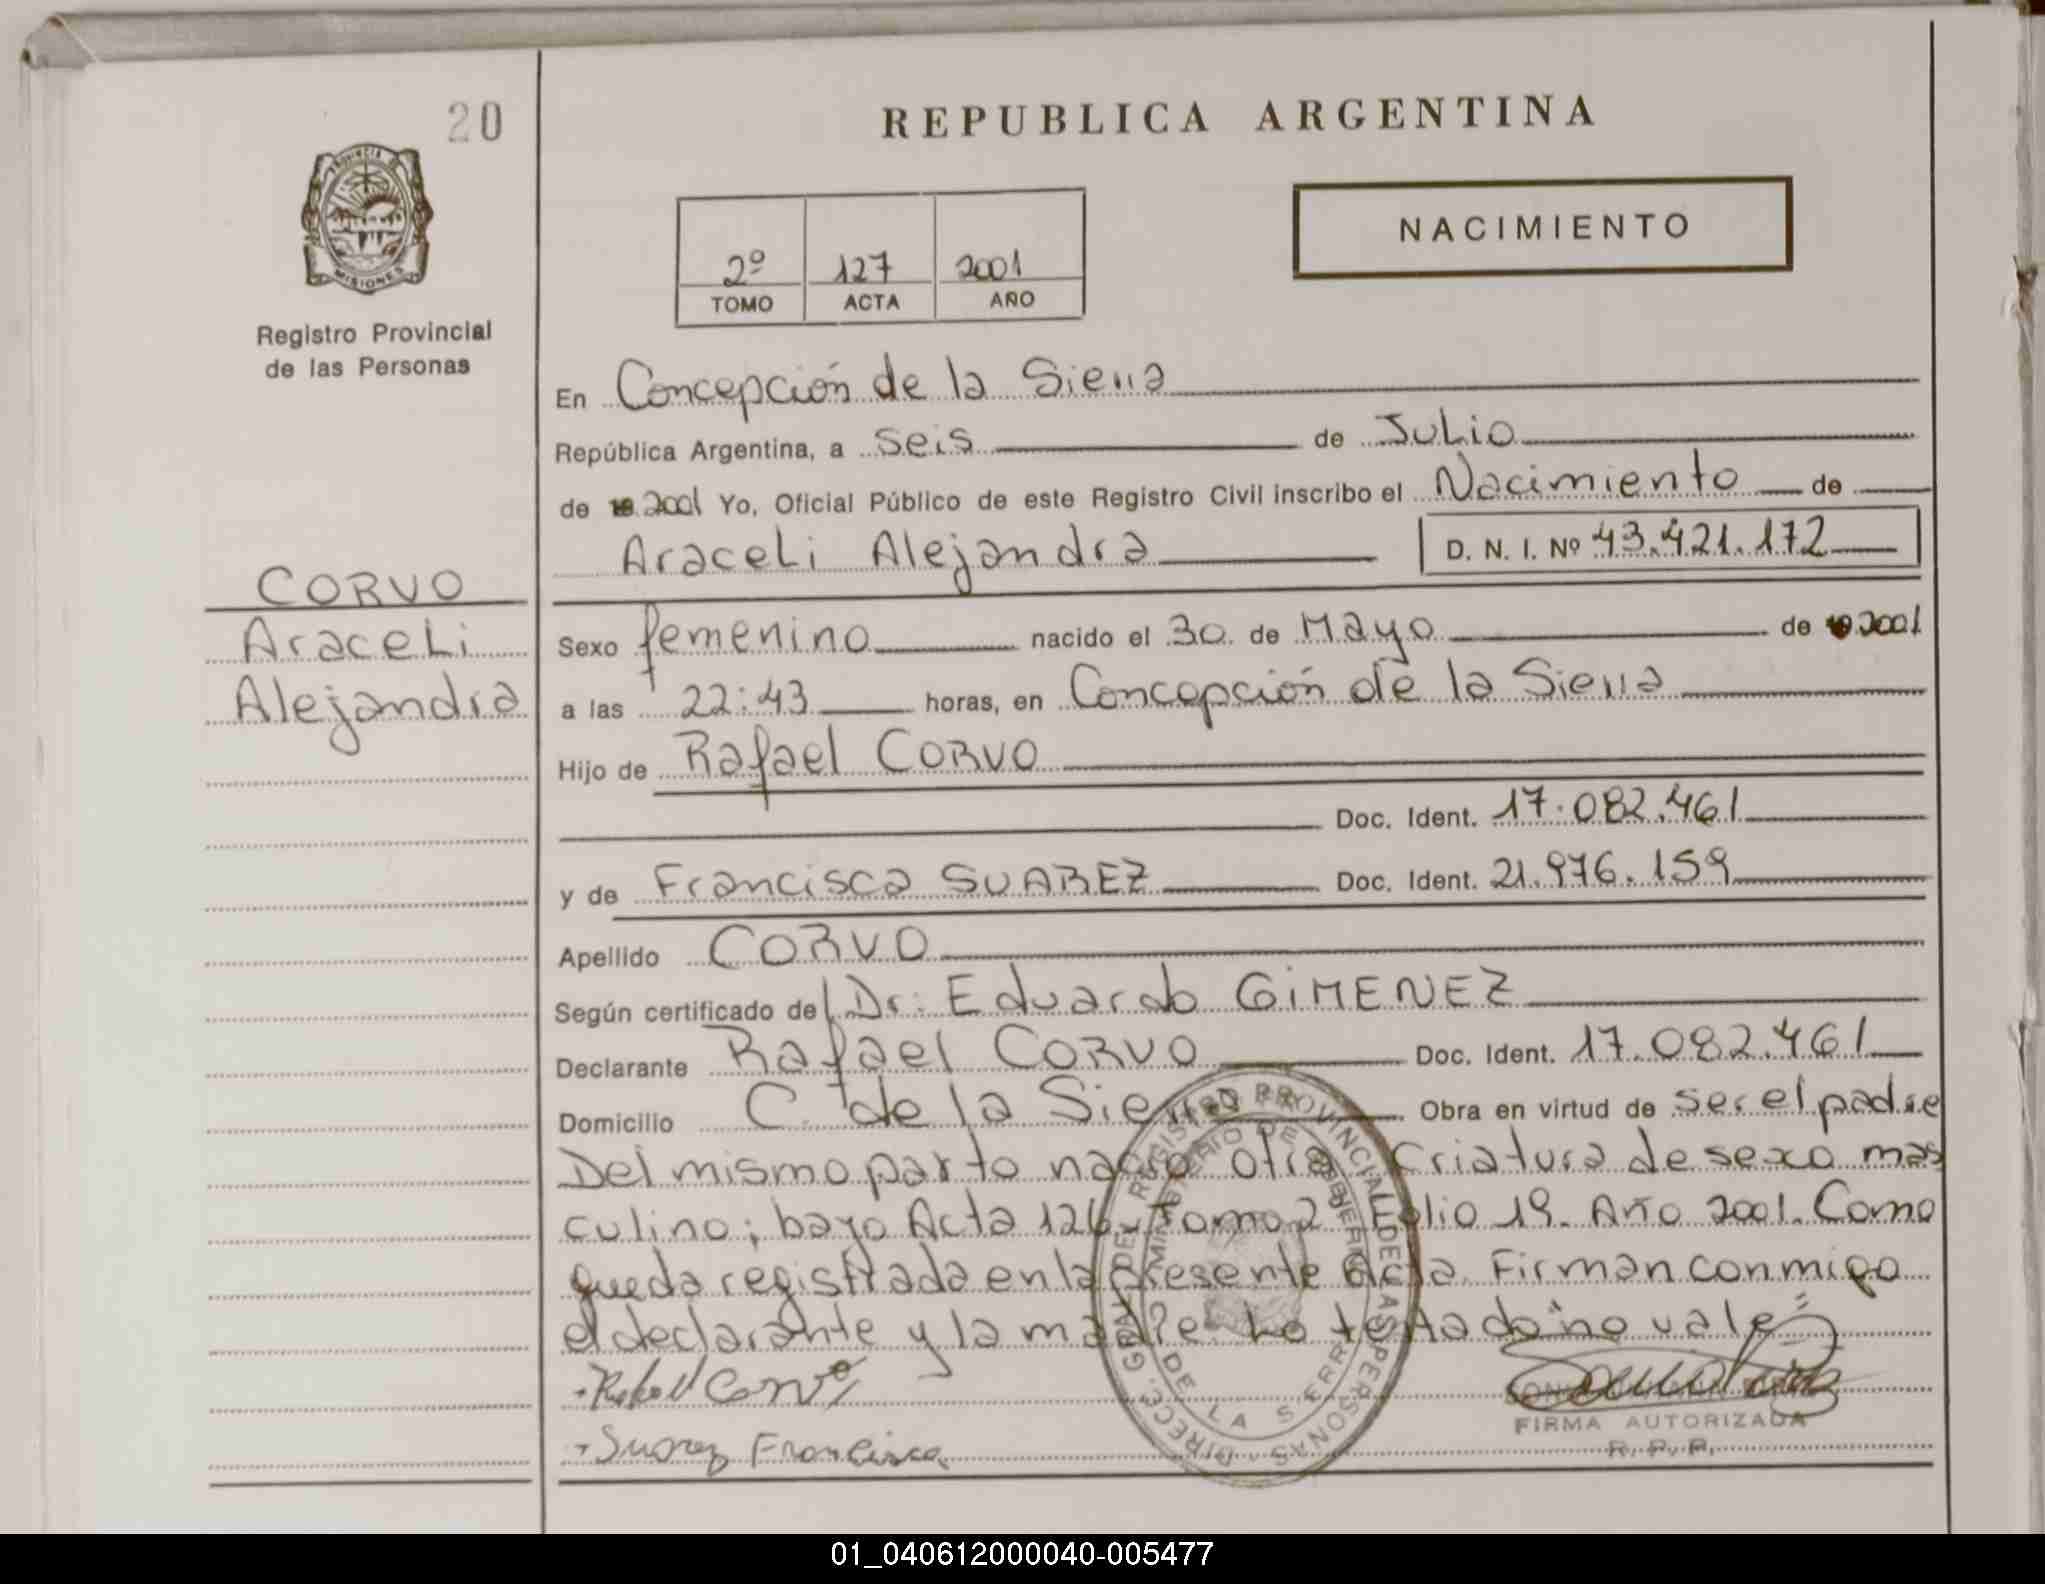 20
REPUBLICA ARGENTINA
PROVINCIA DE
MISIONES
Registro Provincial
de las Personas
NACIMIENTO
2º 127 2001
TOMO ACTA AÑO
En Concepción de la Sierra
República Argentina, a Seis de Julio
de 19 2001 Yo, Oficial Público de este Registro Civil inscribo el Nacimiento de
Araceli Alejandra D. N. I. Nº 43.421.172
CORVO
Araceli
Alejandra
Sexo femenino nacido el 30 de Mayo de 2001
a las 22:43 horas, en Concepción de la Sierra
Hijo de Rafael CORVO
Doc. Ident. 17.082.461
y de Francisca SUAREZ Doc. Ident. 21.976.159
Apellido CORVO
Según certificado del Dr. Eduardo GIMENEZ
Declarante Rafael CORVO Doc. Ident. 17.082.461
Domicilio C. de la Sierra Obra en virtud de ser el padre
Del mismo parto nació otra Criatura de sexo mas
culino; bajo Acta 126. Tomo 2 Folio 19. Año 2001. Como
queda registrada en la presente Acta. Firman conmigo
el declarante y la madre. Lo testado "no vale"
Rafael Corvo
Suarez Francisca
DIRECC. GRAL. DEL REGISTRO PROVINCIAL DE LAS PERSONAS
MINISTERIO DE GOBIERNO
DE LA SIERRA
FIRMA AUTORIZADA
R. P. P.
01_040612000040-005477